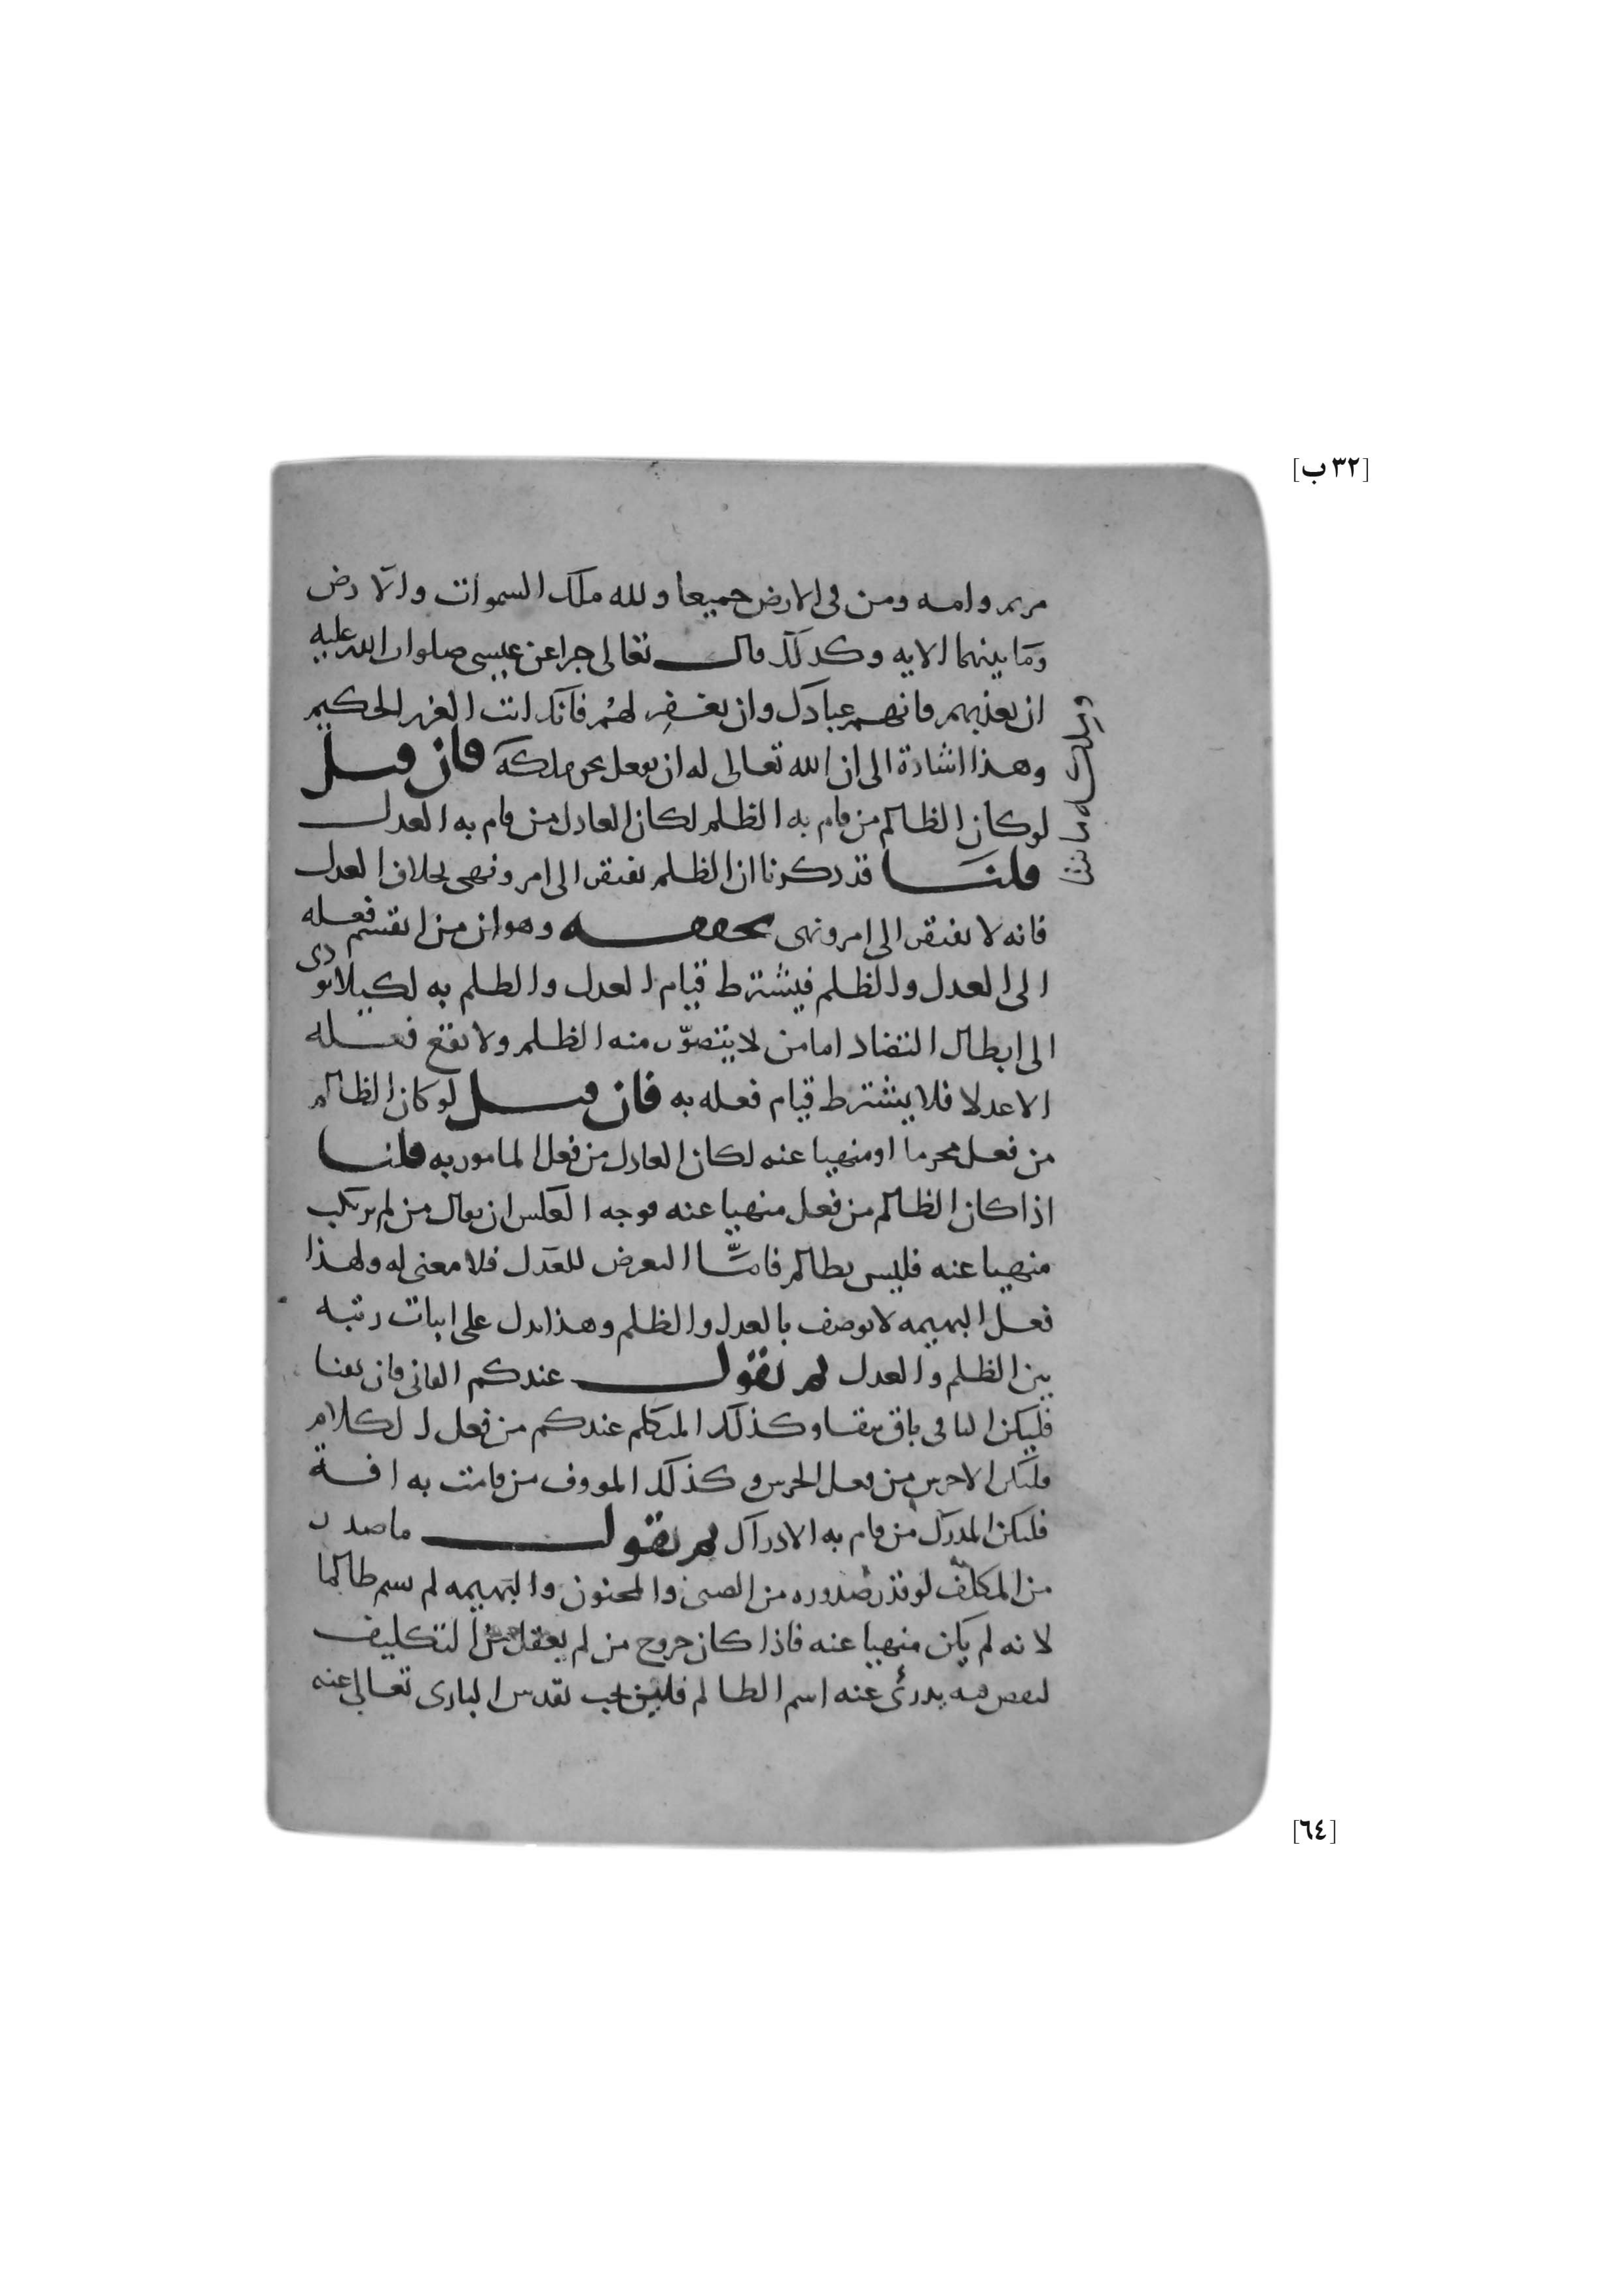 [٣٢ ب]
مريم وامه ومن في الارض جميعا ولله ملك السموات والارض
وما بينهما الايه وكذلك قال تعالى خبرا عن عيسى صلوات الله عليه
ان تعذبهم فانهم عبادك وان تغفر لهم فانك انت العزيز الحكيم
وهذا اشارة الى ان الله تعالى له ان يفعل بحق ملكه فان قيل
لو كان الظالم من قام به الظلم لكان العادل من قام به العدل
قلنا قد ذكرنا ان الظلم يفتقر الى امر ونهى بخلاف العدل
فانه لا يفتقر الى امر ونهى تحققه وهو ان من انقسم فعله
الى العدل والظلم فيشترط قيام العدل والظلم به لكيلا تودى
الى ابطال التضاد اما من لا يتصور منه الظلم ولا تقع فعله
الا عدلا فلا يشترط قيام فعله به فان قيل لو كان الظالم
من فعل محرما او منهيا عنه لكان العادل من فعل المامور به قلنا
اذا كان الظالم من فعل منهيا عنه فوجه العكس ان يقال من لم يرتكب
منهيا عنه فليس بظالم فامّا التعرض للعدل فلا معنى له ولهذا
فعل البهيمه لا يوصف بالعدل والظلم وهذا يدل على اثبات رتبه
بين الظلم والعدل ثم نقول عندكم الفانى فان بفنا
فليكن الباقي باق ببقا وكذلك المتكلم عندكم من فعل الكلام
فليكن الاخرس من فعل الخرس وكذلك المووف من قامت به افة
فليكن المدرك من قام به الادراك ثم نقول ما صدر
من المكلف لو قدر صدوره من الصبى والمجنون والبهيمه لم يسم ظالما
لانه لم يكن منهيا عنه فاذا كان خروج من لم يعقل عن التكليف
لنقص فيه يدرئ عنه اسم الظالم فليـن يجب تقدس البارى تعالى عنه
[٦٤]